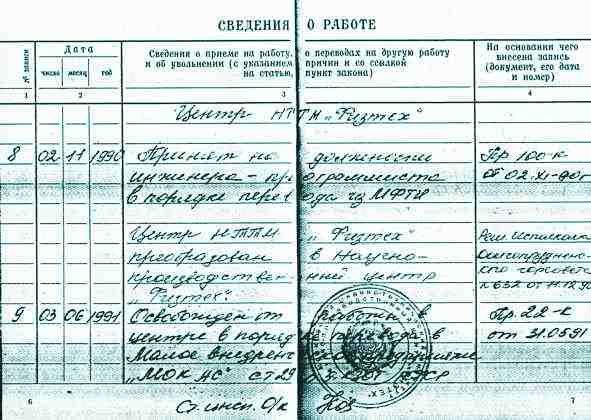 СВЕДЕНИЯ О РАБОТЕ
№ записи
Дата
число месяц год
Сведения о приеме на работу, о переводах на другую работу
и об увольнении (с указанием причин и со ссылкой
на статью, пункт закона)
На основании чего
внесена запись
(документ, его дата
и номер)
1 2 3 4
Центр НТТМ „Физтех“
8 02 11 1990 Принят на должность Пр 100-к
инженера-программиста от 02.XI-90г
в порядке перевода из МФТИ
Центр НТТМ „Физтех“ Реш Исполкома
преобразован в Научно-
производственный центр
„Физтех“.
9 03 06 1991 Освобожден от работы в Пр. 22-к
центре в порядке перевода в от 31.0591
Малое внедренческое предприятие
„МОК ЦС“ ст 29
Ст. инсп. О/к
6 7